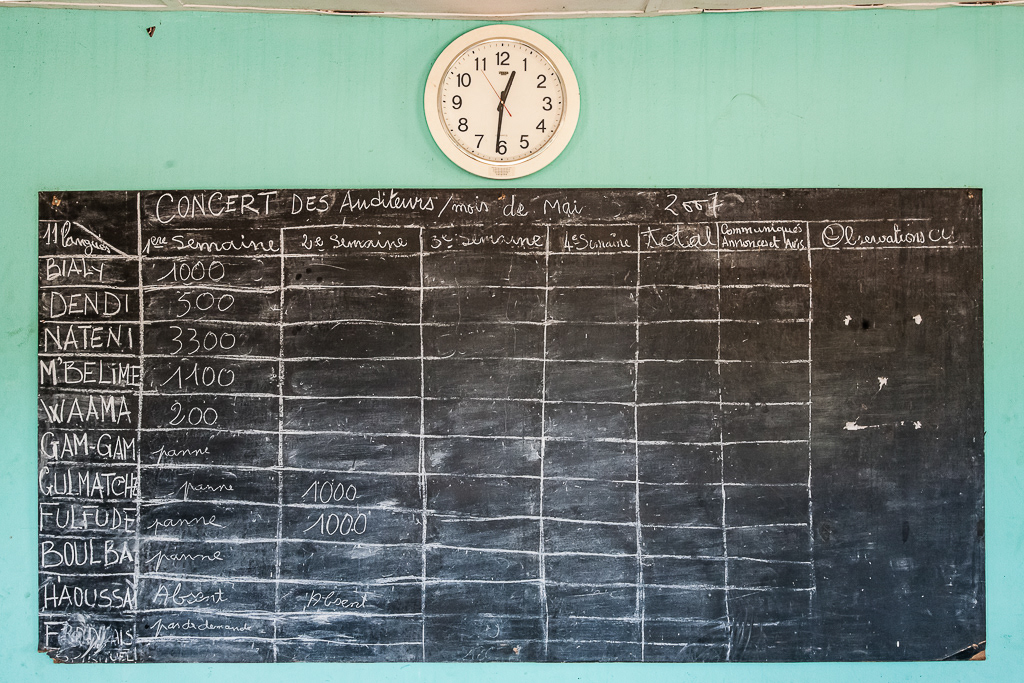 12
1
2
3
4
5
6
7
8
9
10
11
CONCERT DES Auditeurs/mois de Mai 2007
11 langues 1ere Semaine 2e Semaine 3e Semaine 4e Semaine total Communiqués Annonces et Avis Observations
BIALY 1000
DENDI 500
NATENI 3300
M'BELIME 1100
WAAMA 200
GAM-GAM panné
GULMATCHE panne 1000
FULFUDE panné 1000
BOULBA panné
HAOUSSA Absent Absent
pas de demande